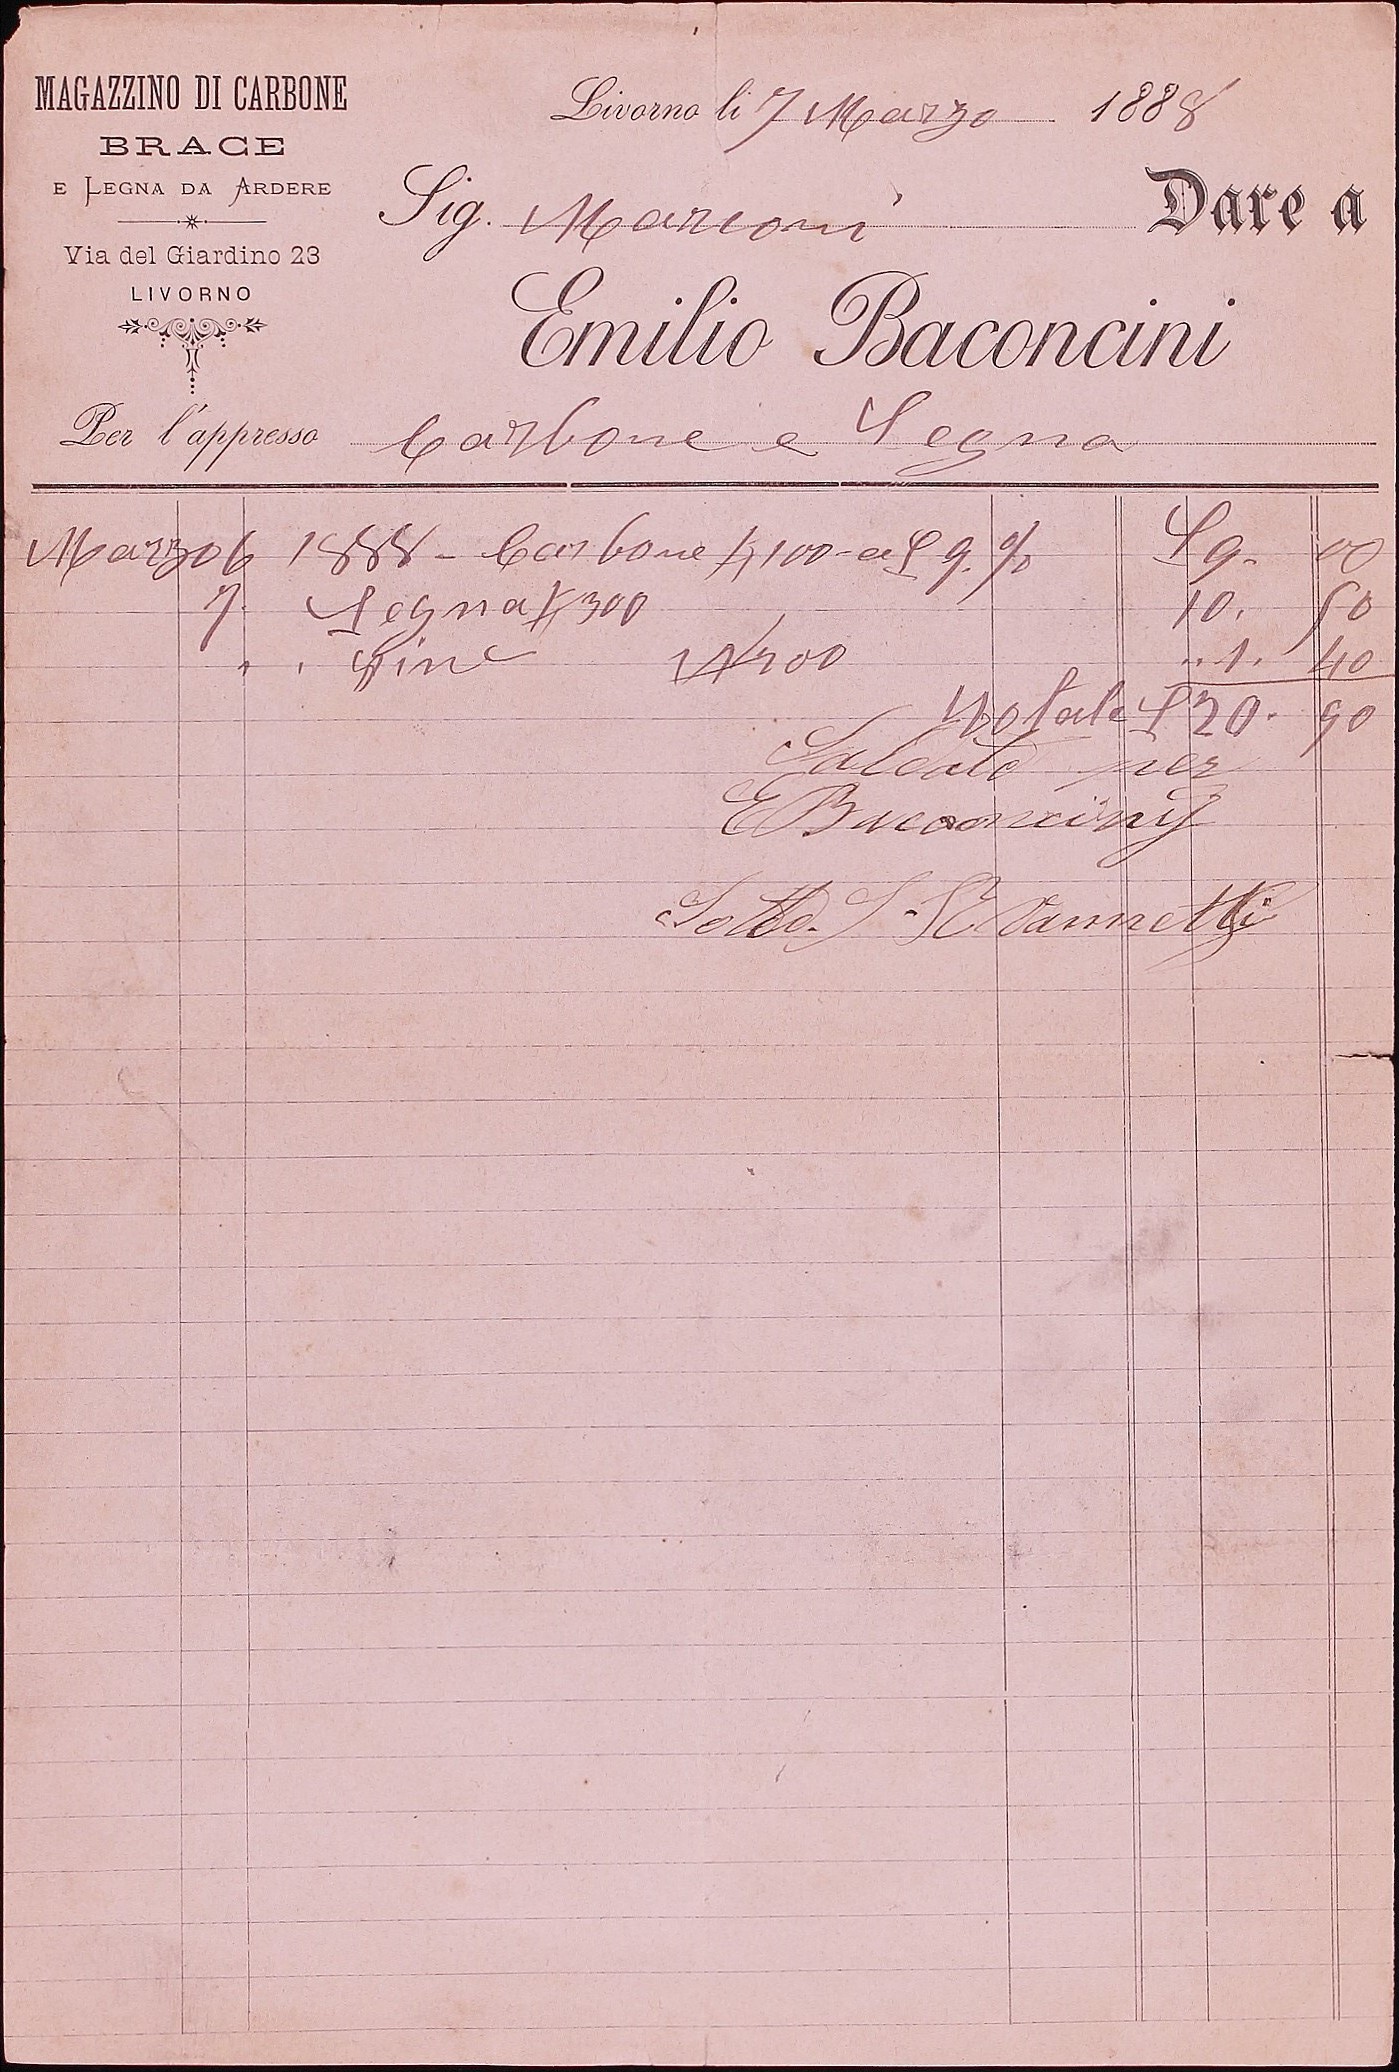 MAGAZZINO DI CARBONE
BRACE
E LEGNA DA ARDERE
Via del Giardino 23
LIVORNO
Livorno li 7 Marzo 1888
Sig. Marconi Dare a
Emilio Baconcini
Per l'appresso Carbone e Legna
Marzo 6 1888 - Carbone 100 - a L 9. % L 9. 00
7. Legna 300 10. 50
" " 200 " 1. 40
Totale L 20. 90
Saldato per
E Baconcini
Vannetti